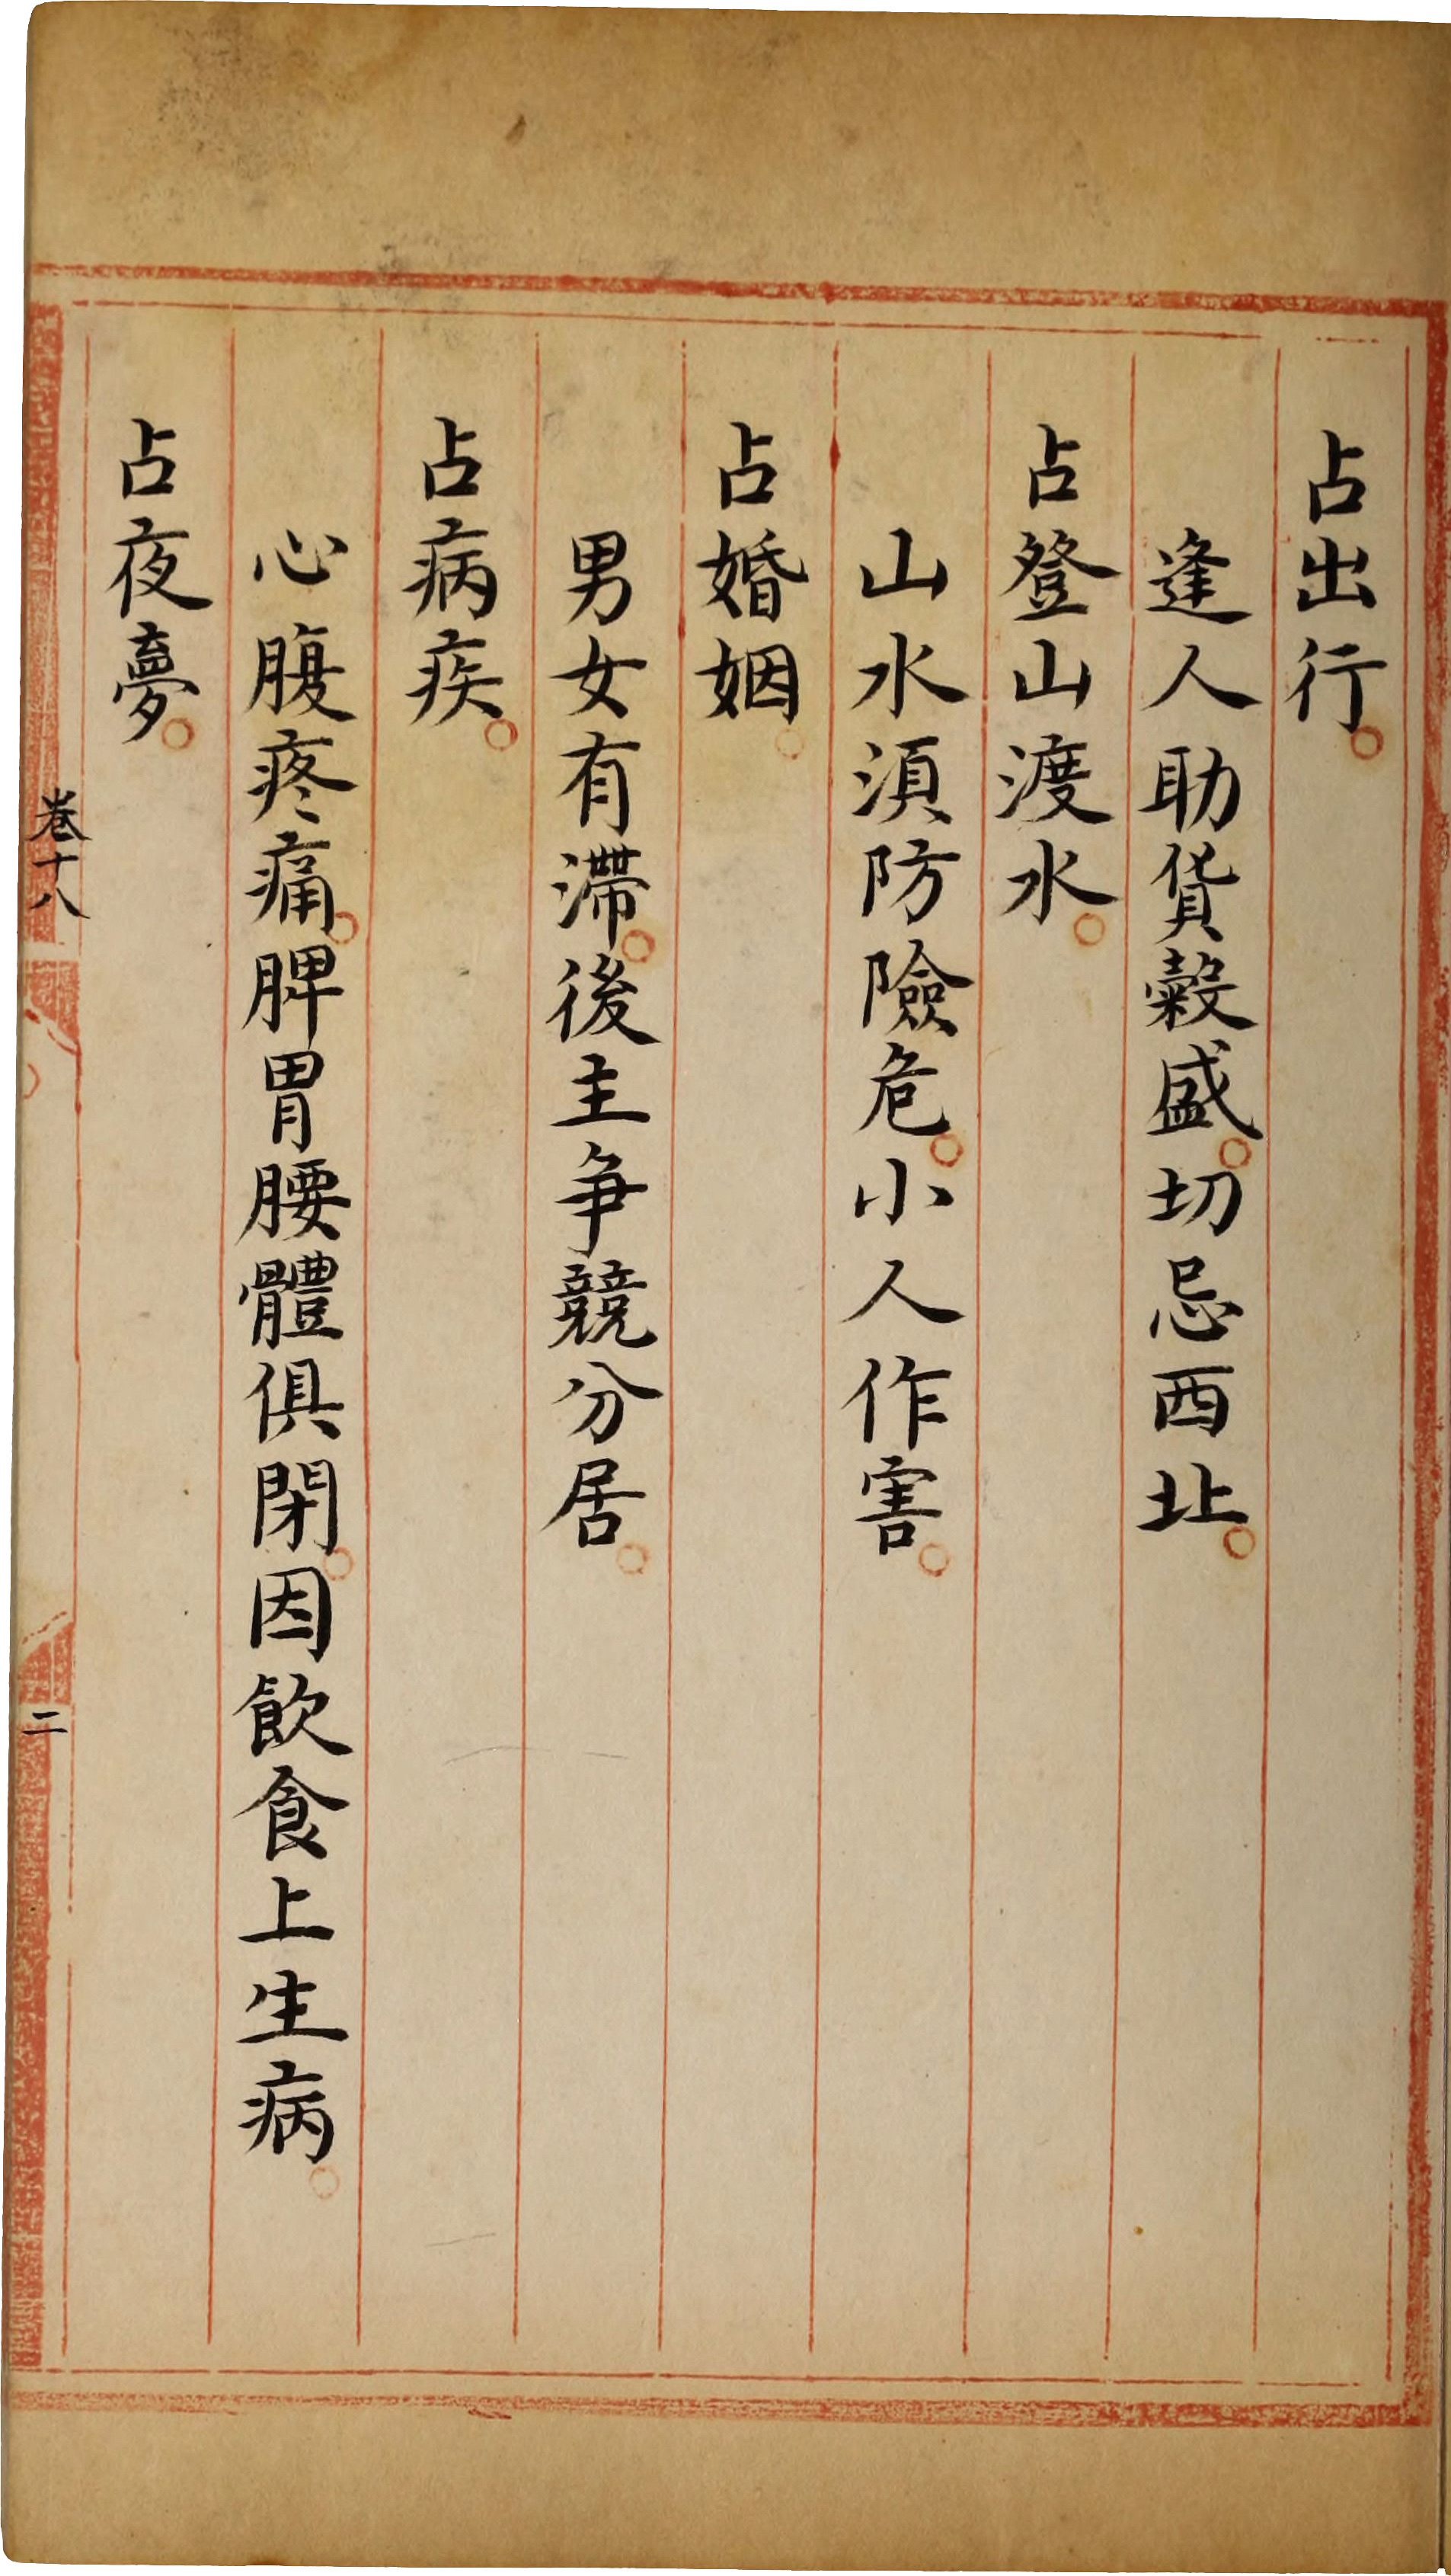 占出行。
逢人助貨穀盛。切忌西北。
占登山渡水。
山水須防險危。小人作害。
占婚姻。
男女有滯。後主爭競分居。
占病疾。
心腹疼痛。脾胃腰體俱閉。因飲食上生病。
占夜夢。
卷十八
二